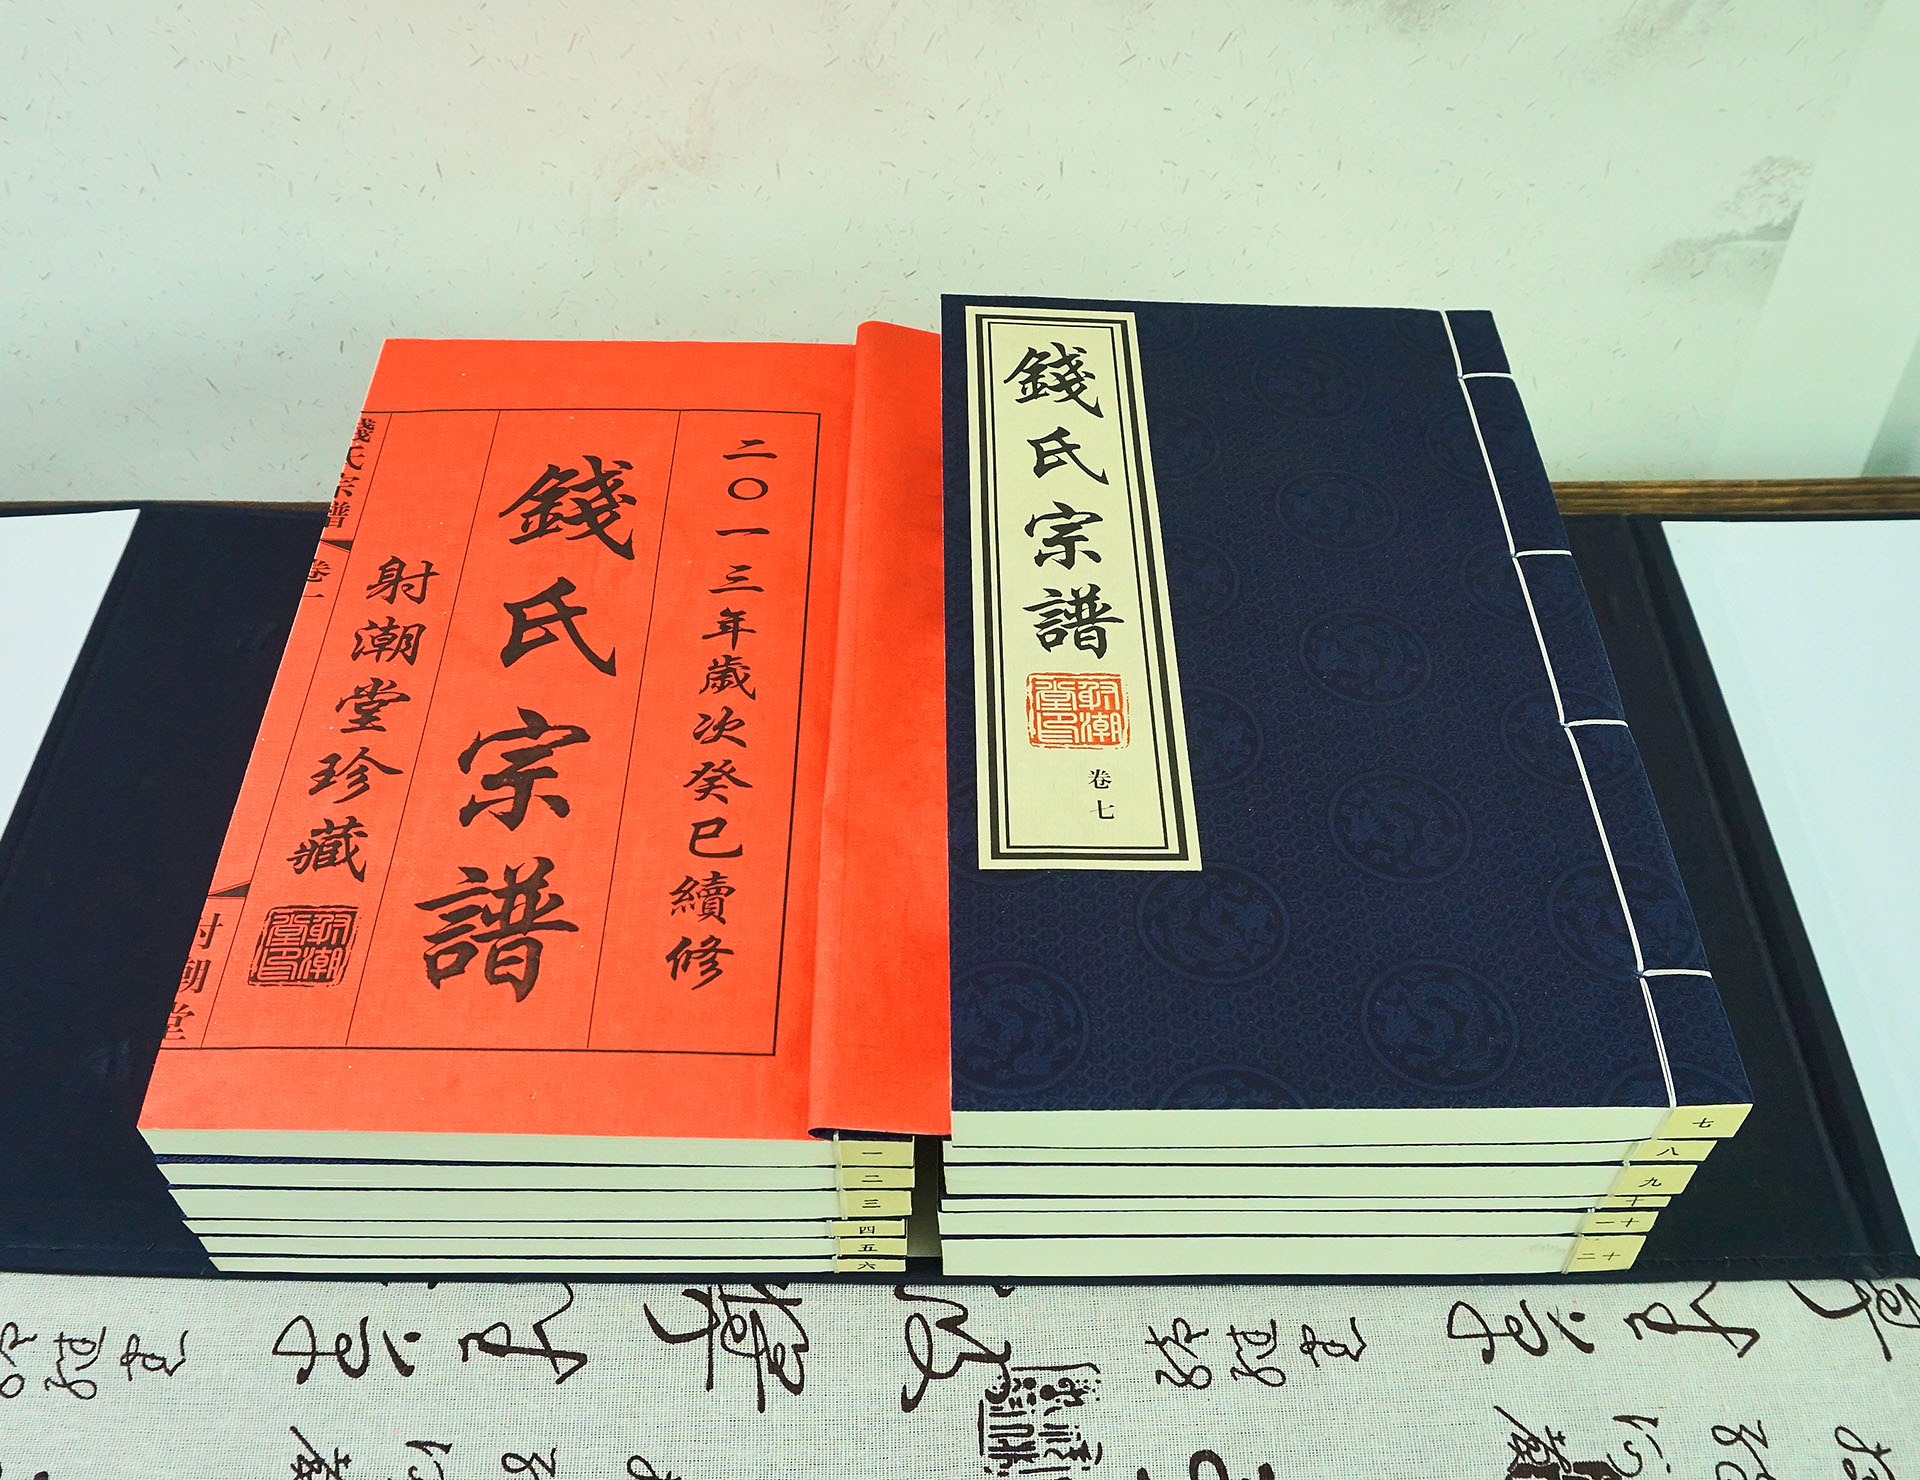 二〇一三年歲次癸巳續修
錢氏宗譜
射潮堂珍藏
射潮堂印
錢氏宗譜
卷一
射潮堂
一
二
三
四
五
六
錢氏宗譜
射潮堂印
卷七
七
八
九
十
十一
十二